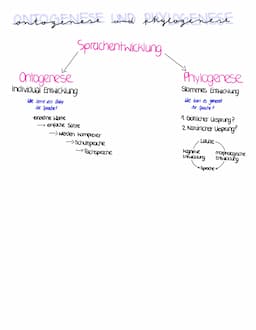 ONTOGENESE UND PHYLOGENESE
ontogenese und phylogenese
Sprachentwicklung
Ontogenese
Individual Entwicklung
Wie lernt ein Baby
die Sprache?
einzelne Worte
→ einfache Sätze
→ werden komplexer
→ Schulsprache
→ Fachsprache
Phylogenese
Stammes Entwicklung
Wie kam es generell
zur Sprache?
1. Göttlicher Ursprung?
2. Natürlicher Ursprung?
Laute
kognitive
Entwicklung
morphologische
Entwicklung
Sprache